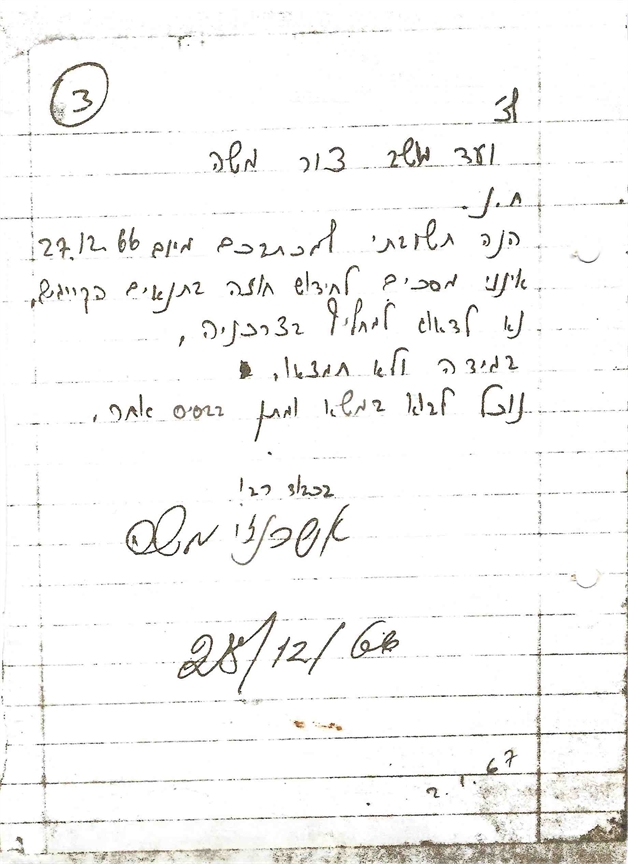 3
לצ'
ועד מושב צור משה
ח.נ.
הנה תשובתי למכתבכם מיום 27.12.66
אינני מסכים לחידוש חוזה בתנאים הקיימים,
נא לדאוג למחליף בצרכניה,
במידה ולא תמצאו,
נוכל לבוא במשא ומתן בבסיס אחר.
בכבוד רב
אשכנזי משה
28/12/66
2.1.67